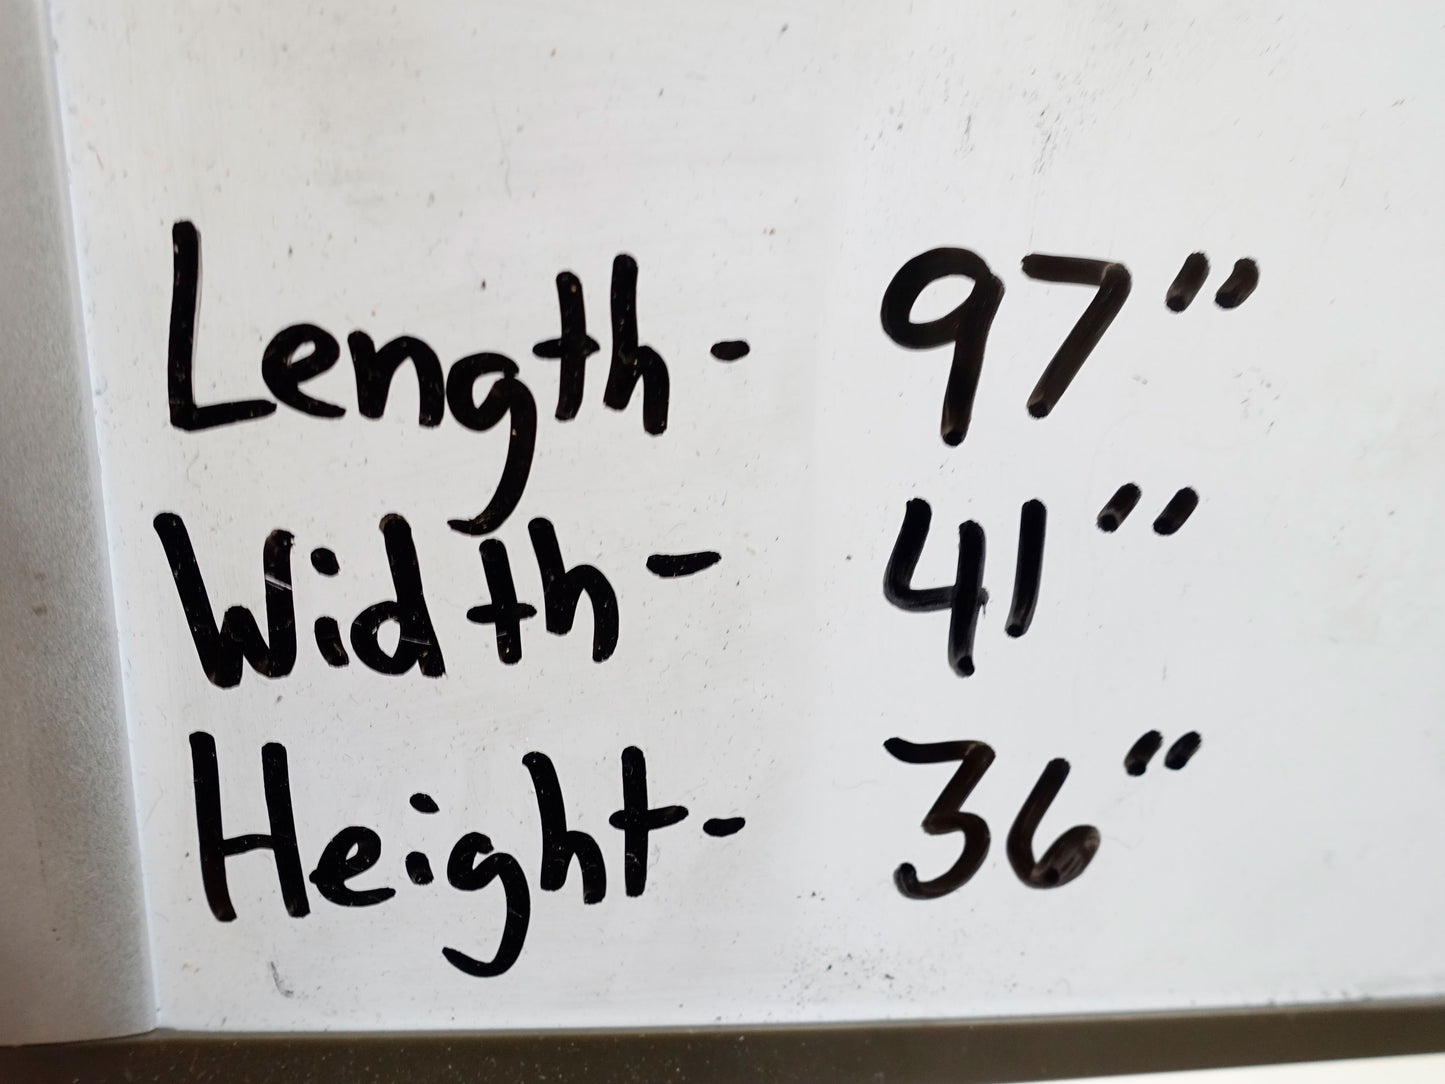 Length- 97"
Width- 41"
Height- 36"